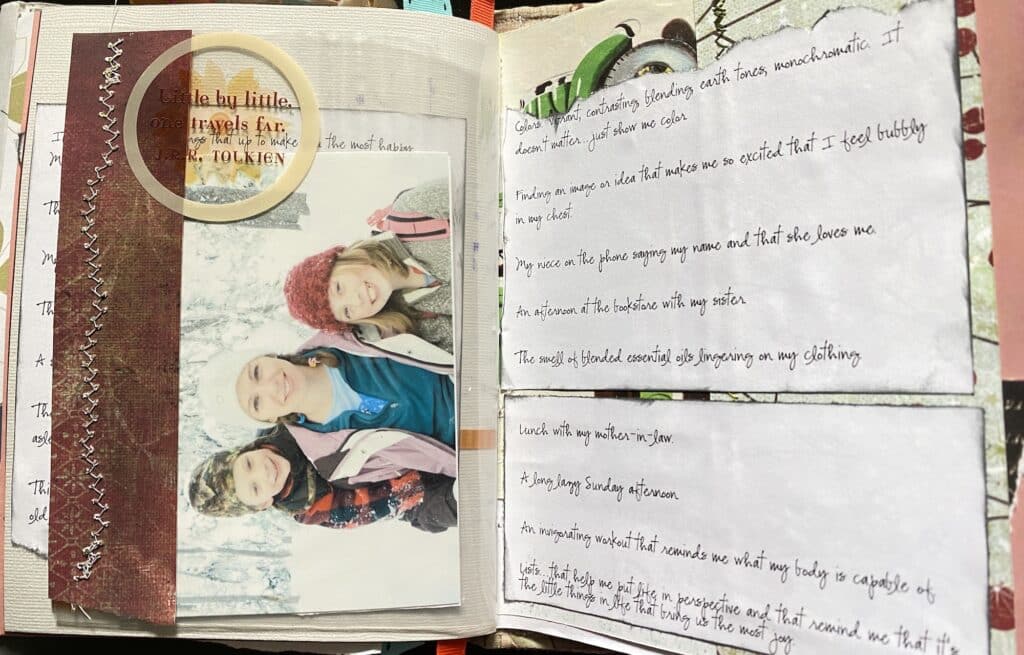 Little by little,
one travels far.
J.R.R. TOLKIEN
I
things that up to make you the most happy
M
Th
M
Th
A
Th
asle
Thi
old
Colors. Vibrant, contrasting, blending, earth tones, monochromatic. It
doesn't matter...just show me color
Finding an image or idea that makes me so excited that I feel bubbly
in my chest.
My niece on the phone saying my name and that she loves me.
An afternoon at the bookstore with my sister
The smell of blended essential oils lingering on my clothing
Lunch with my mother-in-law.
A long lazy Sunday afternoon
An invigorating workout that reminds me what my body is capable of
Lists...that help me put life in perspective and that remind me that it's
the little things in life that bring us the most joy